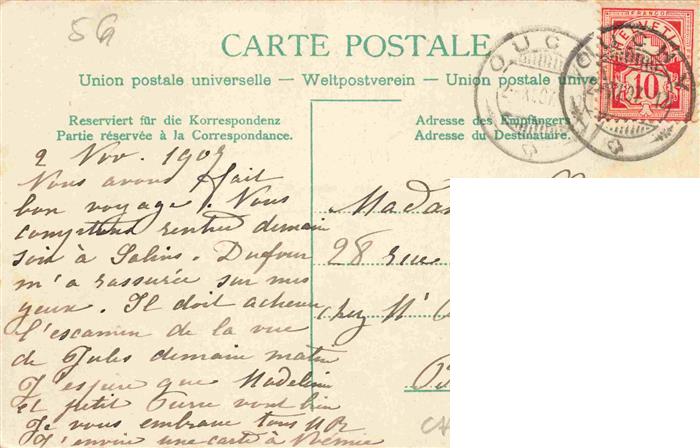 5G
CARTE POSTALE
Union postale universelle — Weltpostverein — Union postale unive
Reserviert für die Korrespondenz
Partie réservée à la Correspondance.
Adresse des Empfängers
Adresse du Destinataire.
OUCHY
OUCHY
FRANCO
HELVETIA
10
2 Nov. 1907
Nous avons fait
bon voyage. Nous
comptons rentrer demain
soir à Salins. Dufour
m'a rassurée sur mes
yeux. Il doit achever
l'examen de la vue
de Jules demain matin
J'espère que Madeleine
et petit Pierre vont bien
Je vous embrasse tous
J'envoie une carte à
Madam
28 rue
chez M